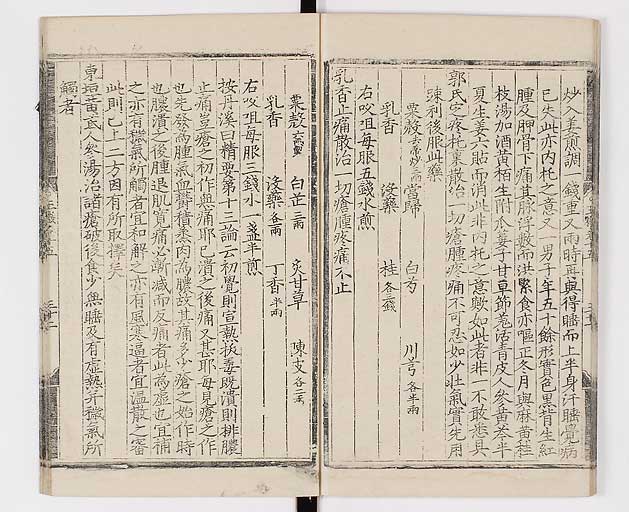 炒入姜煎調一錢重又兩時再與得睡而上半身汗睡覺病
已失此亦內托之意又一男子年五十餘形實色黑背生紅
腫及胛骨下痛其脉浮數而洪緊食亦嘔正冬月與麻黃桂
枝湯加酒黃栢生附瓜蔞子甘草節羌活青皮人參黃芩半
夏生姜六貼而消此非內托之意歟如此者非一不敢悉具
郭氏定疼托裏散治一切瘡腫疼痛不可忍如少壯氣實先用
疎利後服此藥
粟殼 當歸 白芍 川芎各半兩
乳香 沒藥 桂各三錢
右㕮咀每服五錢水煎
乳香止痛散治一切瘡腫疼痛不止
粟殼 白芷三兩 炙甘草 陳皮各二兩
乳香 沒藥各兩 丁香半兩
右㕮咀每服三錢水一盞半煎
按丹溪曰精要第十三論云初覺則宣熱拔毒旣潰則排膿
止痛豈瘡之初作無痛耶已潰之後痛又甚耶每見瘡之作
也先發為腫氣血鬱積蒸肉為膿故其痛多少瘡之始作時
也膿潰之後腫退肌寛痛必漸減而反痛者此為虛也宜補
之亦有穢氣所觸者宜和解之亦有風寒逼者宜溫散之審
此則已上二方因有所取擇矣
東垣黃芪人參湯治諸瘡破後食少無睡及有虛熱并穢氣所
觸者